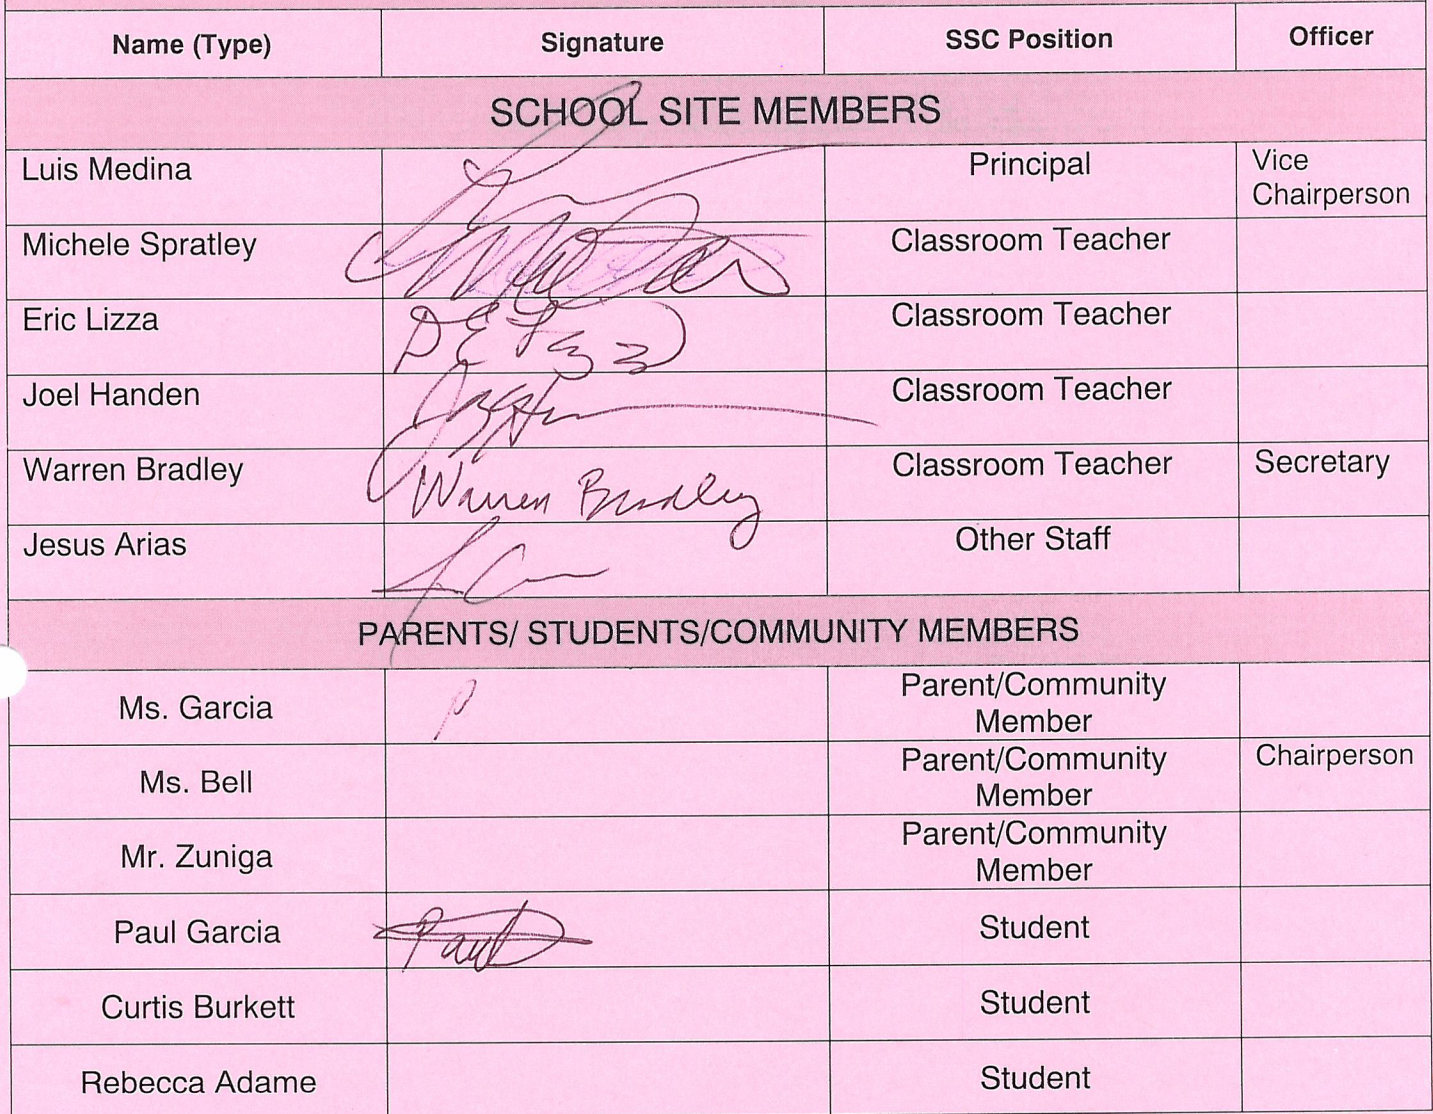 Name (Type) Signature SSC Position Officer
SCHOOL SITE MEMBERS
Luis Medina Principal Vice Chairperson
Michele Spratley Classroom Teacher
Eric Lizza Classroom Teacher
Joel Handen Classroom Teacher
Warren Bradley Warren Bradley Classroom Teacher Secretary
Jesus Arias Other Staff
PARENTS/ STUDENTS/COMMUNITY MEMBERS
Ms. Garcia P Parent/Community Member
Ms. Bell Parent/Community Member Chairperson
Mr. Zuniga Parent/Community Member
Paul Garcia Paul Student
Curtis Burkett Student
Rebecca Adame Student